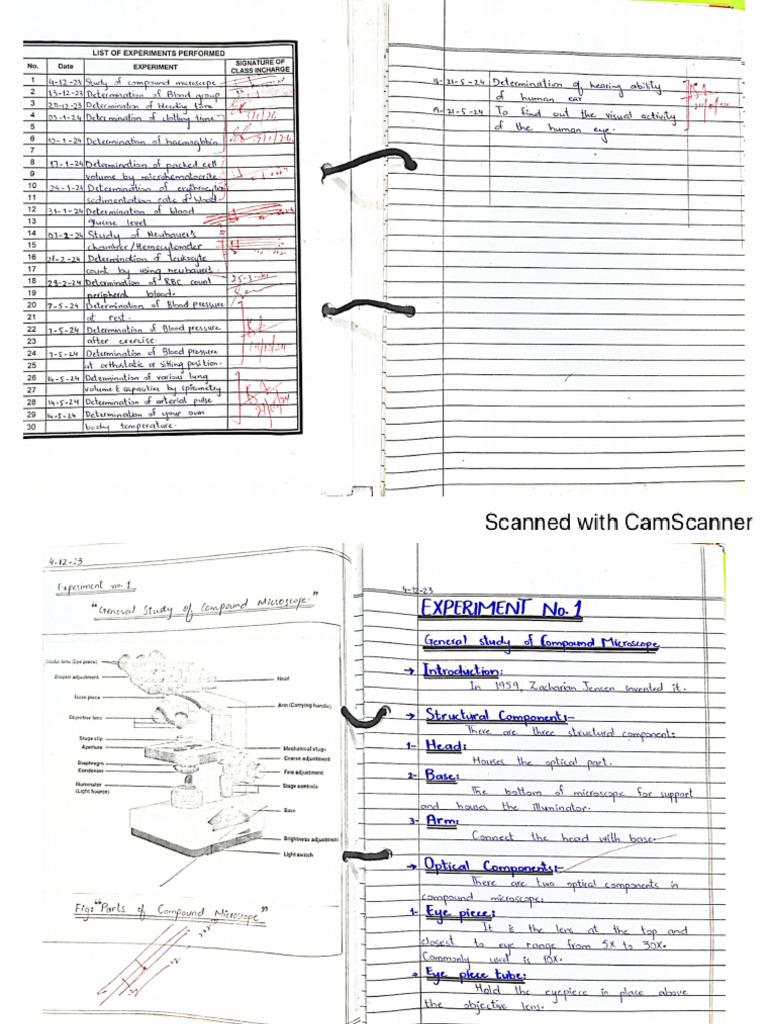 LIST OF EXPERIMENTS PERFORMED
No. Date EXPERIMENT SIGNATURE OF CLASS INCHARGE
1 4-12-23 Study of compound microscope
2 13-12-23 Determination of Blood group
3 20-12-23 Determination of bleeding time
4 03-1-24 Determination of clotting time
5
6 10-1-24 Determination of haemoglobin
7
8 17-1-24 Determination of packed cell
9 volume by microhematocrite
10 24-1-24 Determination of erythrocytes
11 sedimentation rate of blood
12 31-1-24 Determination of blood
13 glucose level
14 03-2-24 Study of Neubauer's
15 chamber/Hemocytometer
16 21-2-24 Determination of leukocyte
17 count by using neubauer's
18 28-2-24 Determination of RBC count
19 peripheral blood.
20 7-5-24 Determination of Blood pressure
21 at rest.
22 7-5-24 Determination of Blood pressure
23 after exercise.
24 7-5-24 Determination of Blood pressure
25 at orthostatic or sitting position.
26 14-5-24 Determination of various lung
27 volume & capacities by spirometry
28 14-5-24 Determination of arterial pulse
29 14-5-24 Determination of your own
30 body temperature.
21-5-24 Determination of hearing ability
of human ear
21-5-24 To find out the visual activity
of the human eye.
Scanned with CamScanner
4-12-23
Experiment no. 1
"General Study of Compound Microscope."
Ocular lens (Eye piece)
Diopter adjustment
Head
Nose piece
Arm (Carrying handle)
Objective lens
Stage clip
Aperture
Mechanical stage
Coarse adjustment
Diaphragm
Condenser
Fine adjustment
Illuminator
(Light source)
Stage controls
Base
Brightness adjustment
Light switch
Fig: "Parts of Compound Microscope"
4-12-23
EXPERIMENT No. 1
General study of Compound Microscope
→ Introduction:
In 1959, Zacharian Jensen invented it.
→ Structural Component:-
There are three structural component:
1- Head:
Houses the optical part.
2- Base:
The bottom of microscope for support
and houses the illuminator.
3- Arm:
Connect the head with base.
→ Optical Components:-
There are two optical components in
compound microscope:
1- Eye piece:
It is the lens at the top and
closest to eye range from 5X to 30X.
Commonly used is 10X.
→ Eye piece tube:
Hold the eyepiece in place above
the objective lens.